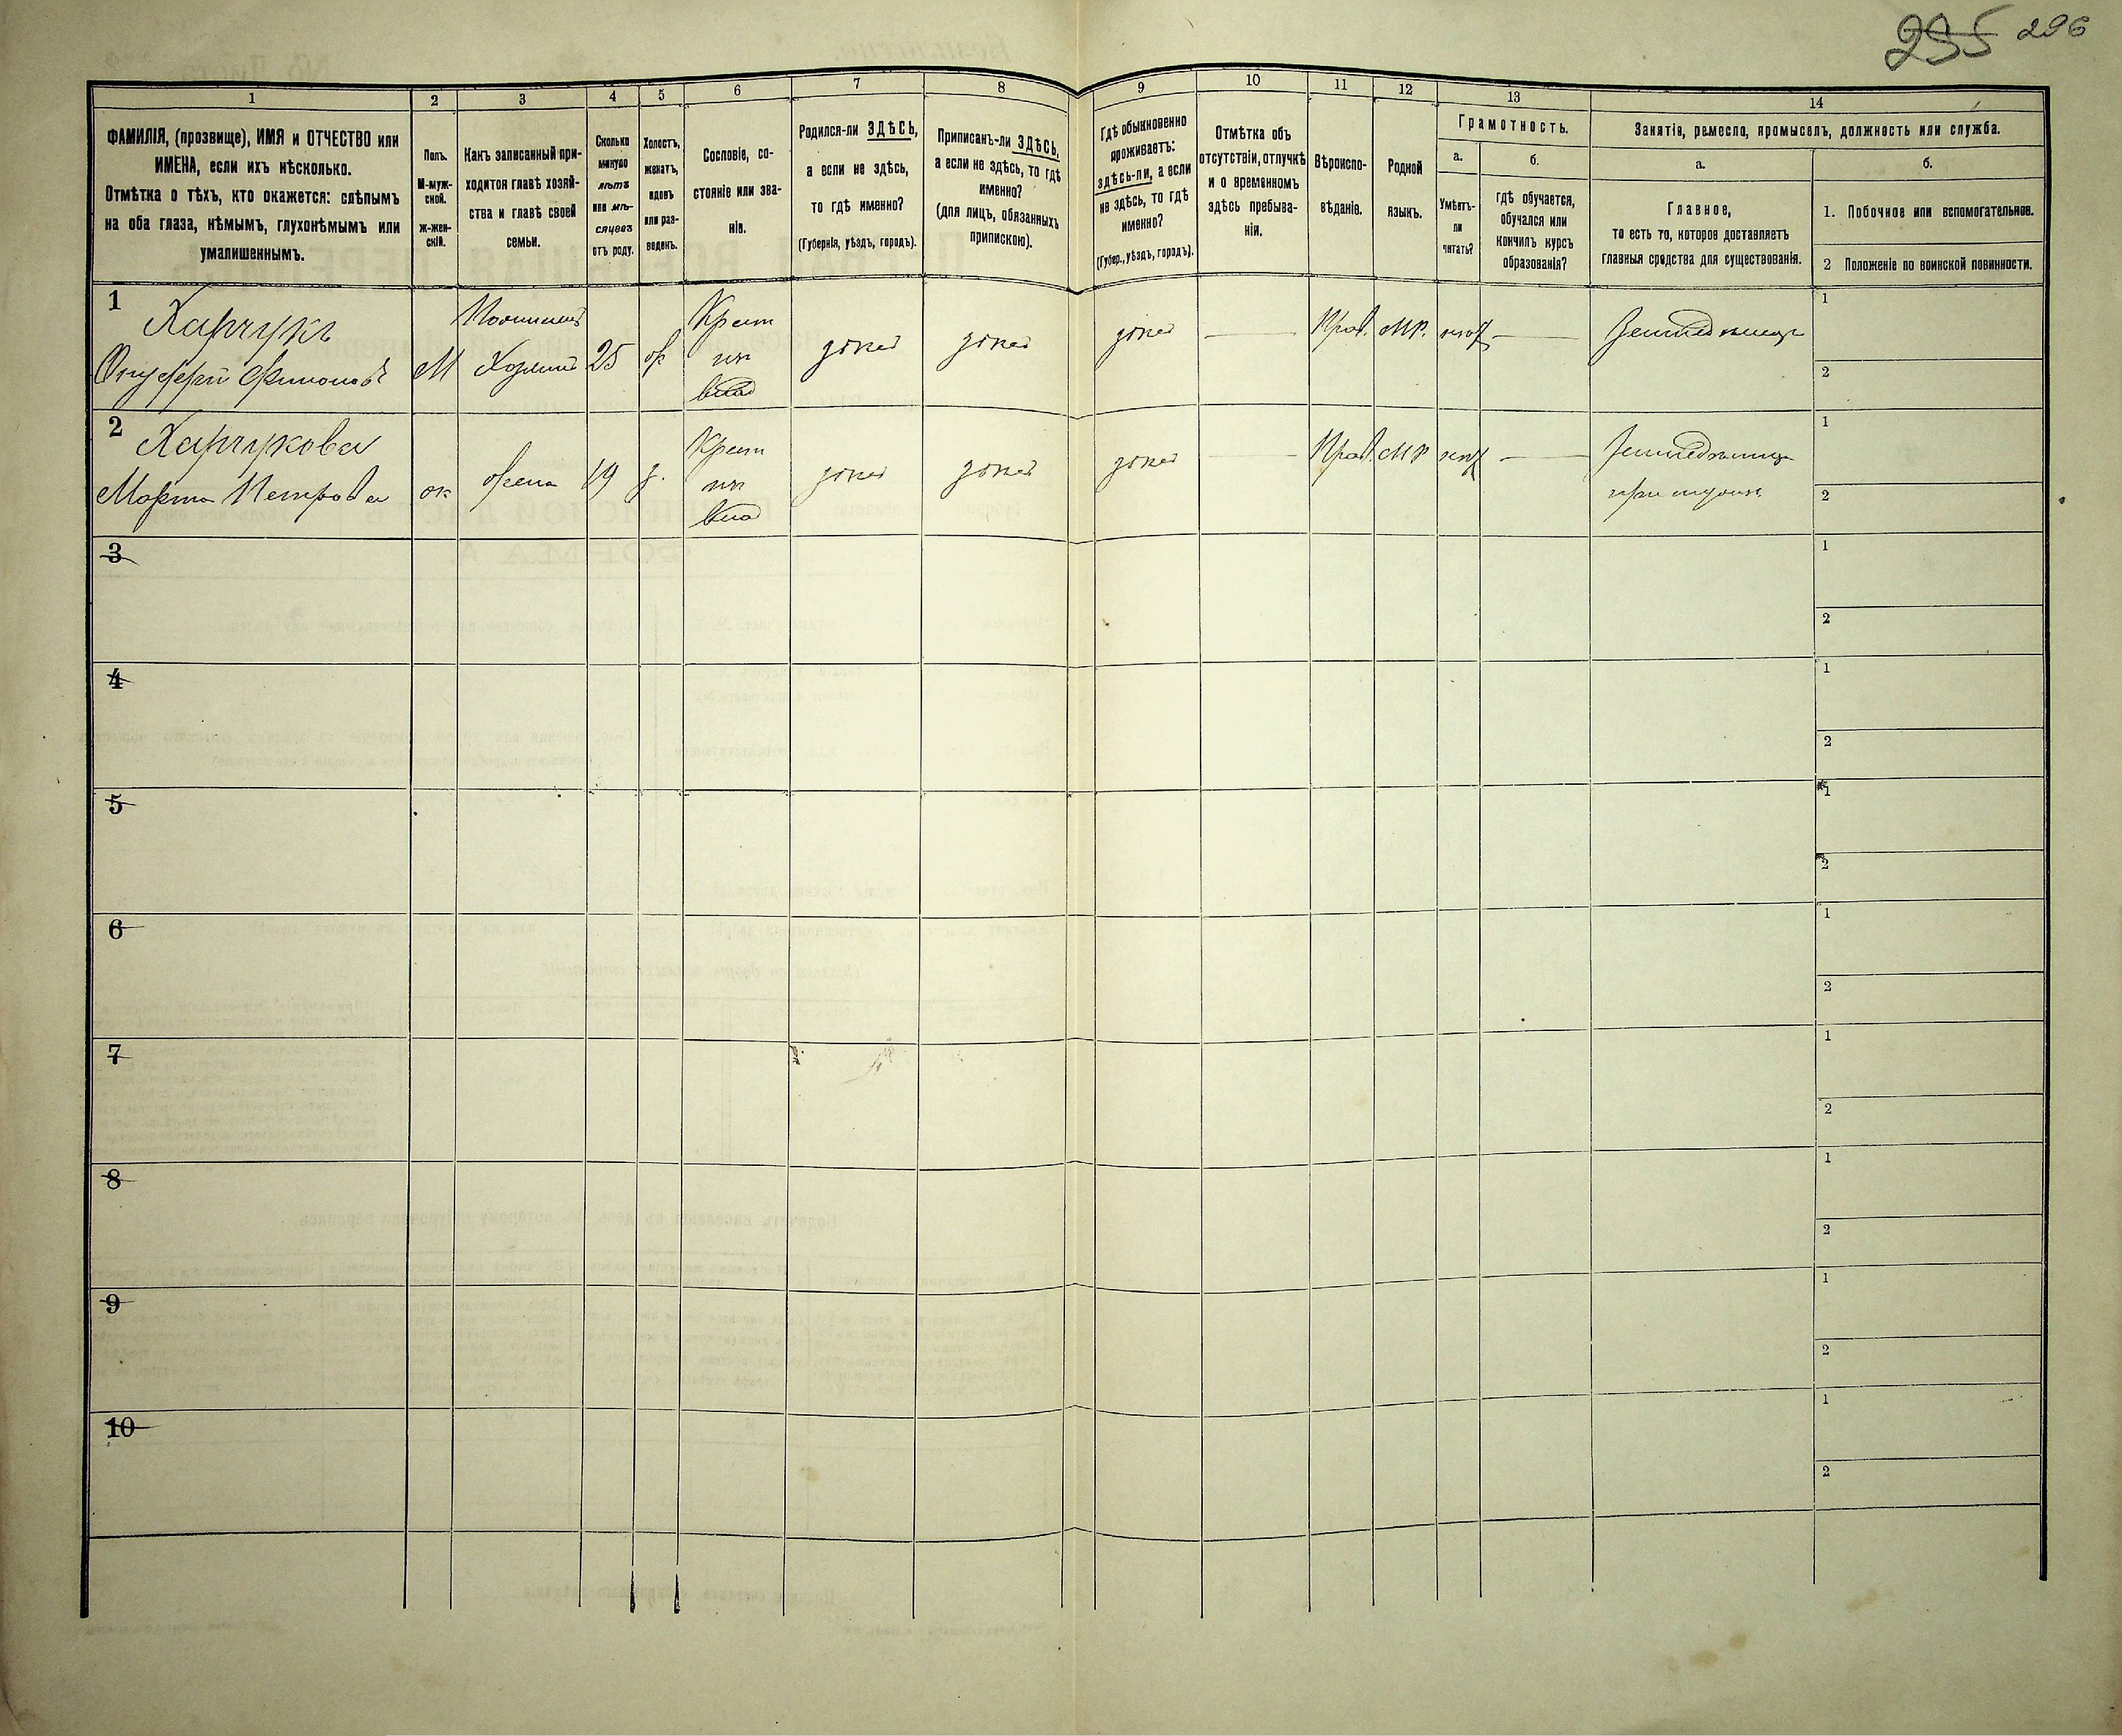 295 296
1 2 3 4 5 6 7 8 9 10 11 12 13 14
ФАМИЛІЯ, (прозвище), ИМЯ и ОТЧЕСТВО или
ИМЕНА, если ихъ нѣсколько.
Отмѣтка о тѣхъ, кто окажется: слѣпымъ
на оба глаза, нѣмымъ, глухонѣмымъ или
умалишеннымъ.
Полъ.
М-муж-
ской.
ж-жен-
скій.
Какъ записанный при-
ходится главѣ хозяй-
ства и главѣ своей
семьи.
Сколько
минуло
лѣтъ
или мѣ-
сяцевъ
отъ роду.
Холостъ,
женатъ,
вдовъ
или раз-
веденъ.
Сословіе, со-
стояніе или зва-
ніе.
Родился-ли ЗДѢСЬ,
а если не здѣсь,
то гдѣ именно?
(Губернія, уѣздъ, городъ).
Приписанъ-ли ЗДѢСЬ,
а если не здѣсь, то гдѣ
именно?
(для лицъ, обязанныхъ
припискою).
Гдѣ обыкновенно
проживаетъ:
здѣсь-ли, а если
не здѣсь, то гдѣ
именно?
(Губер., уѣздъ, городъ).
Отмѣтка объ
отсутствіи, отлучкѣ
и о временномъ
здѣсь пребыва-
ніи.
Вѣроиспо-
вѣданіе.
Родной
языкъ.
Грамотность.
а.
Умѣетъ-
ли
читать?
б.
гдѣ обучается,
обучался или
кончилъ курсъ
образованія?
Занятія, ремесло, промыселъ, должность или служба.
а.
Главное,
то есть то, которое доставляетъ
главныя средства для существованія.
б.
1. Побочное или вспомогательное.
2 Положеніе по воинской повинности.
1
Харчукъ
Онуфрій Филимоновъ
М
Хозяинъ
25
Крест
изъ
влад
здѣсь
здѣсь
здѣсь
Прав.
МР.
нѣтъ
Земледѣлецъ
1
2
2
Харчукова
Марта Петровна
ж
жена
19
з.
Крест
изъ
влад
здѣсь
здѣсь
здѣсь
Прав.
МР
нѣтъ
Земледѣлица
при мужѣ
1
2
3
1
2
4
1
2
5
1
2
6
1
2
7
1
2
8
1
2
9
1
2
10
1
2